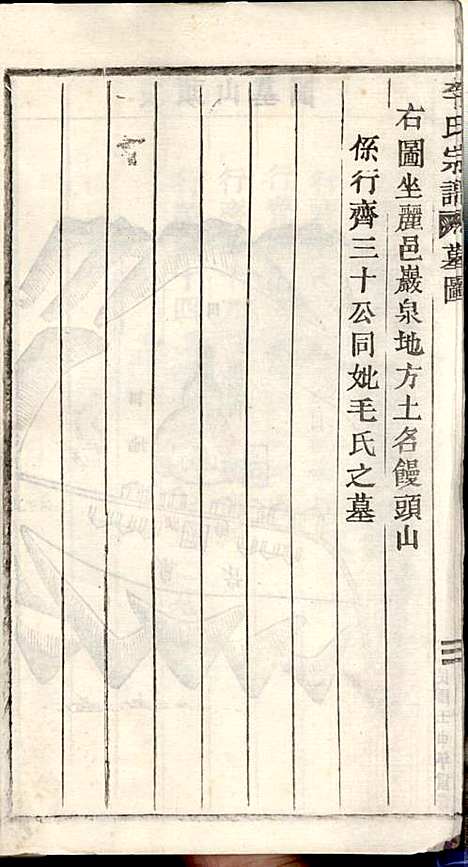 李氏宗譜
墓圖
右圖坐麗邑巖泉地方土名饅頭山
係行齊三十公同妣毛氏之墓